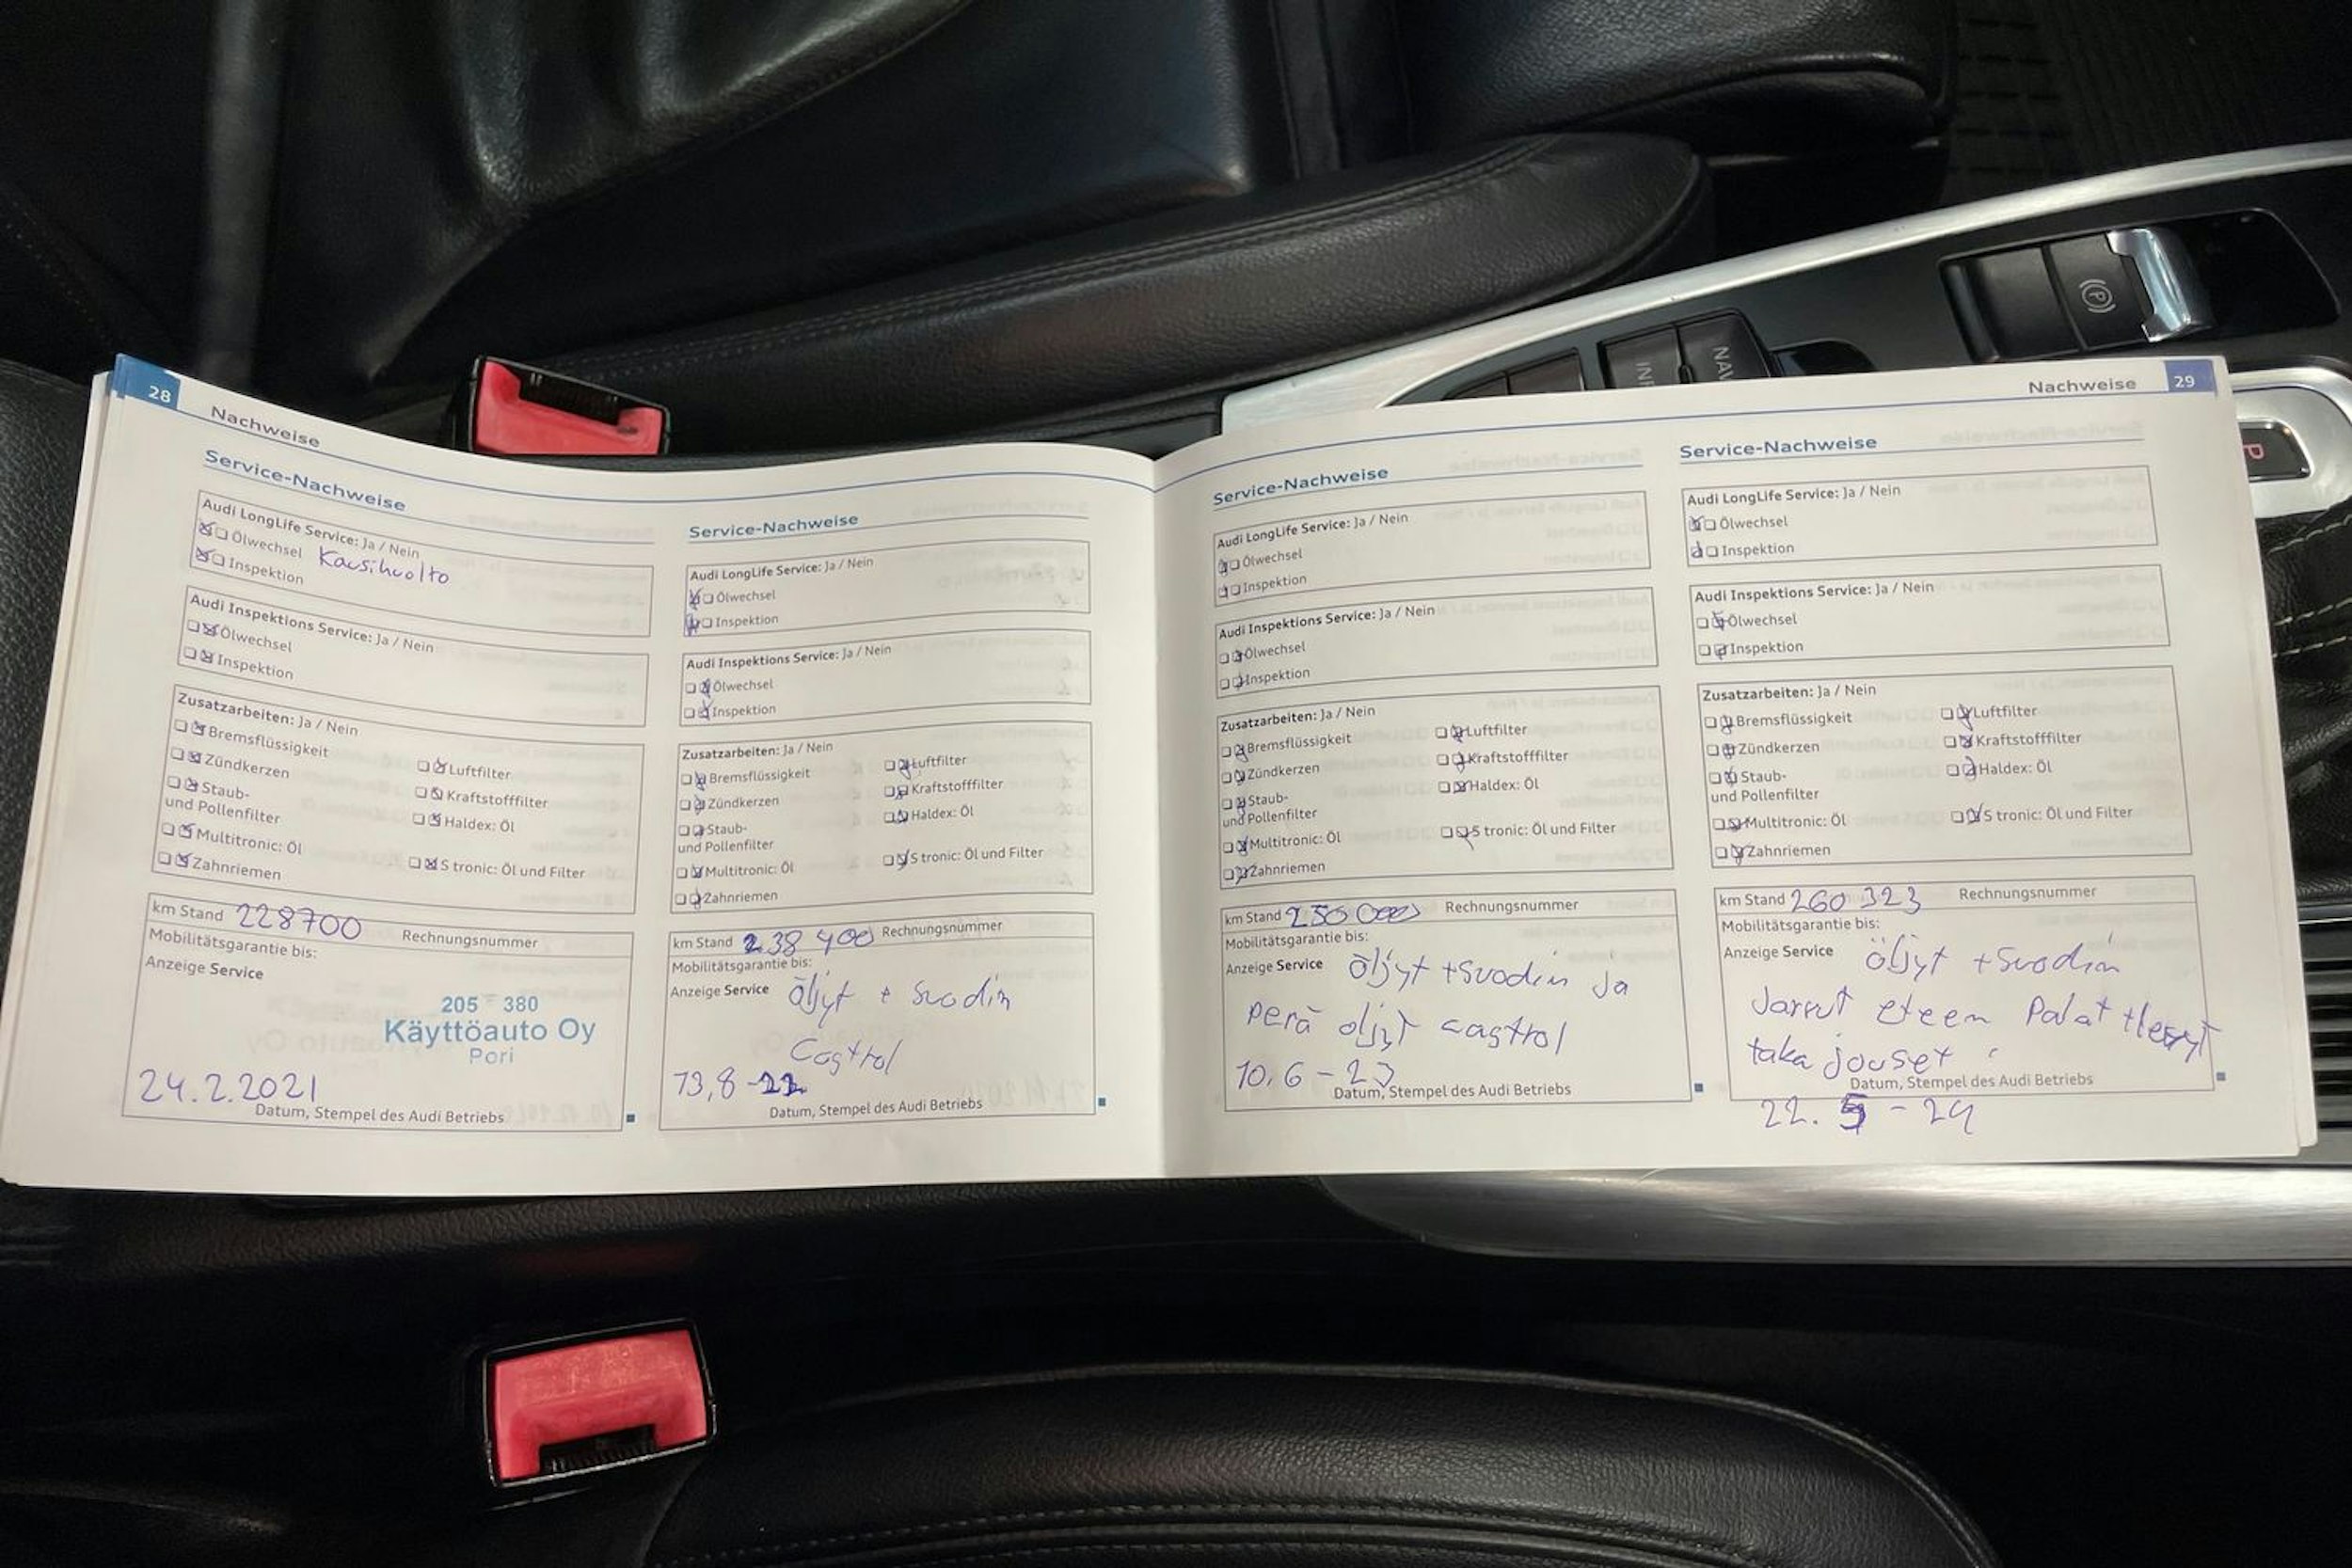 28
Nachweise
Service-Nachweise
Audi LongLife Service: Ja / Nein
Ölwechsel Kausihuolto
Inspektion
Audi Inspektions Service: Ja / Nein
Ölwechsel
Inspektion
Zusatzarbeiten: Ja / Nein
Bremsflüssigkeit
Zündkerzen
Staub-
und Pollenfilter
Multitronic: Öl
Zahnriemen
Luftfilter
Kraftstofffilter
Haldex: Öl
S tronic: Öl und Filter
km Stand 228700 Rechnungsnummer
Mobilitätsgarantie bis:
Anzeige Service
205 380
Käyttöauto Oy
Pori
24.2.2021
Datum, Stempel des Audi Betriebs
Service-Nachweise
Audi LongLife Service: Ja / Nein
Ölwechsel
Inspektion
Audi Inspektions Service: Ja / Nein
Ölwechsel
Inspektion
Zusatzarbeiten: Ja / Nein
Bremsflüssigkeit
Zündkerzen
Staub-
und Pollenfilter
Multitronic: Öl
Zahnriemen
Luftfilter
Kraftstofffilter
Haldex: Öl
S tronic: Öl und Filter
km Stand 238 400 Rechnungsnummer
Mobilitätsgarantie bis:
Anzeige Service öljyt + suodin
Castrol
13,8-22
Datum, Stempel des Audi Betriebs
Nachweise
29
Service-Nachweise
Audi LongLife Service: Ja / Nein
Ölwechsel
Inspektion
Audi Inspektions Service: Ja / Nein
Ölwechsel
Inspektion
Zusatzarbeiten: Ja / Nein
Bremsflüssigkeit
Zündkerzen
Staub-
und Pollenfilter
Multitronic: Öl
Zahnriemen
Luftfilter
Kraftstofffilter
Haldex: Öl
S tronic: Öl und Filter
km Stand 250 000 Rechnungsnummer
Mobilitätsgarantie bis:
Anzeige Service öljyt + suodin Ja
perä öljyt castrol
10.6-23
Datum, Stempel des Audi Betriebs
Service-Nachweise
Audi LongLife Service: Ja / Nein
Ölwechsel
Inspektion
Audi Inspektions Service: Ja / Nein
Ölwechsel
Inspektion
Zusatzarbeiten: Ja / Nein
Bremsflüssigkeit
Zündkerzen
Staub-
und Pollenfilter
Multitronic: Öl
Zahnriemen
Luftfilter
Kraftstofffilter
Haldex: Öl
S tronic: Öl und Filter
km Stand 260 323 Rechnungsnummer
Mobilitätsgarantie bis:
Anzeige Service öljyt + suodin
Jarrut eteen Palat
taka jouset
Datum, Stempel des Audi Betriebs
22. 5 - 24
NAV
P
P